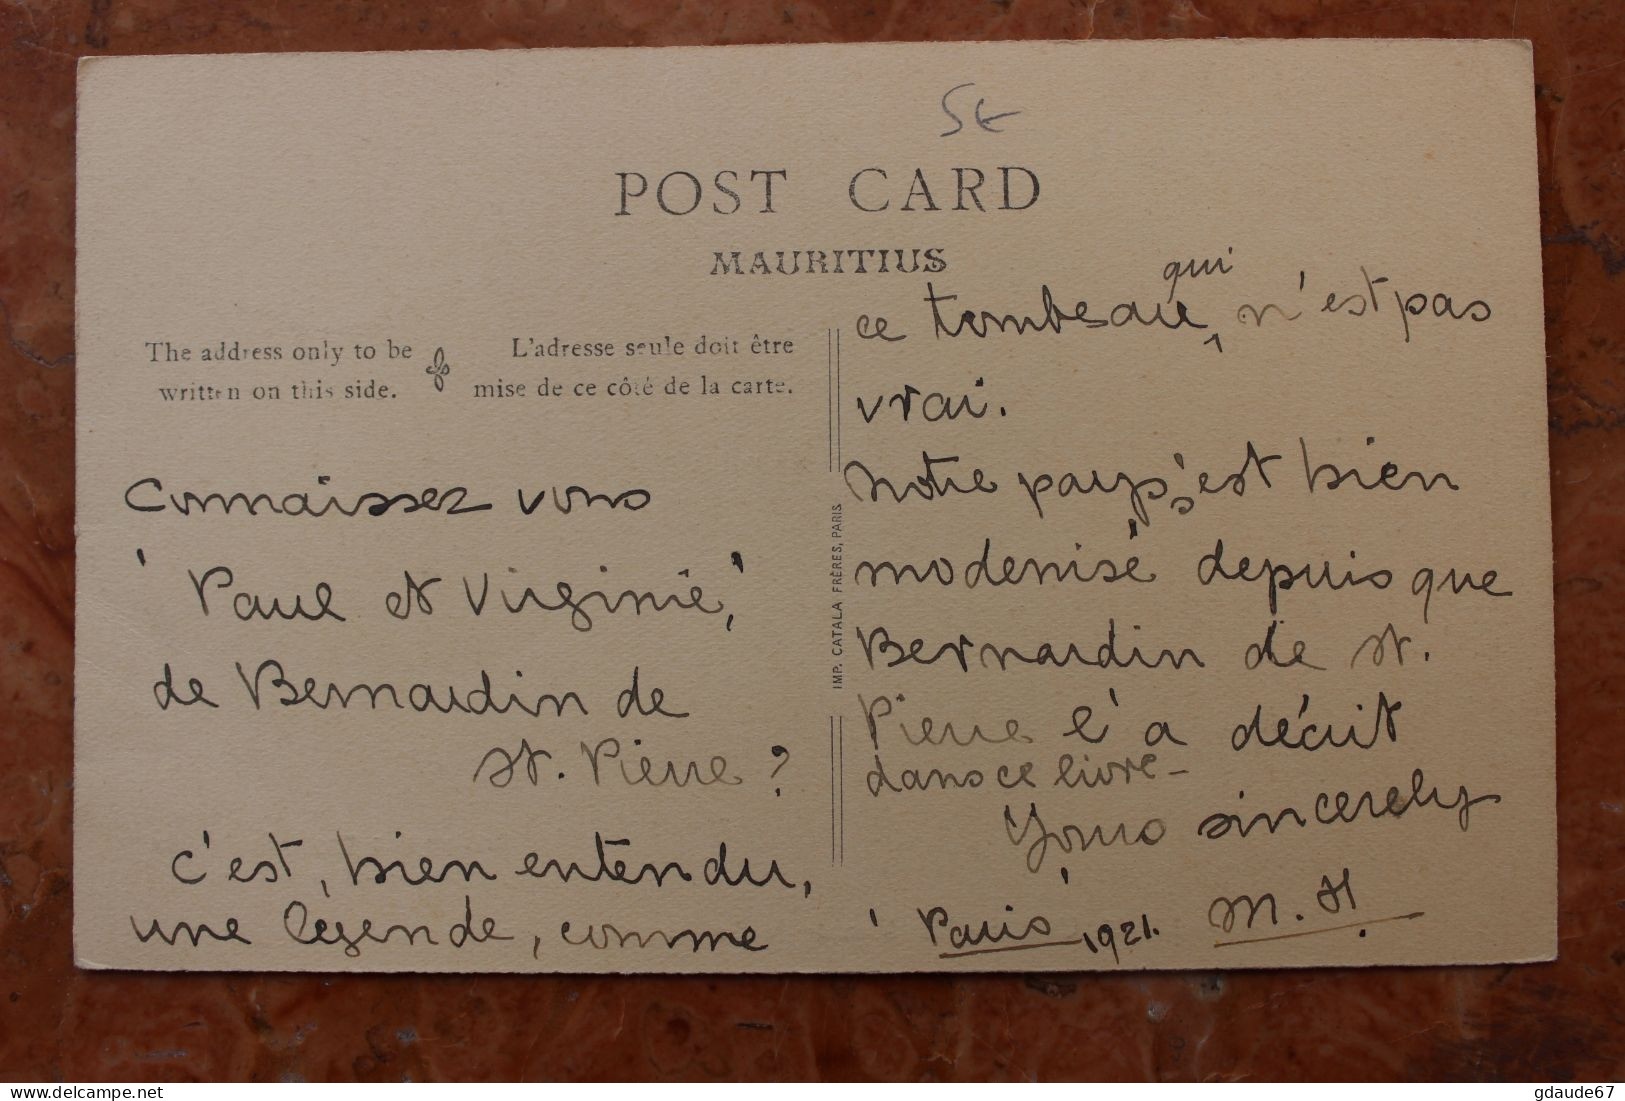 5€
POST CARD
MAURITIUS
The address only to be
written on this side.
L'adresse seule doit être
mise de ce côté de la carte.
Connaissez vous
'Paul et Virginie,'
de Bernardin de
St. Pierre ?
C'est, bien entendu,
une légende, comme
IMP. CATALA FRÈRES, PARIS
qui
ce tombeau ‸ n'est pas
vrai.
Notre pays s'est bien
modenisé depuis que
Bernardin de St.
Pierre l'a décrit
dans ce livre -
Yours sincerely
'Paris' 1921. M. H.
delcampe.net
gdaude67